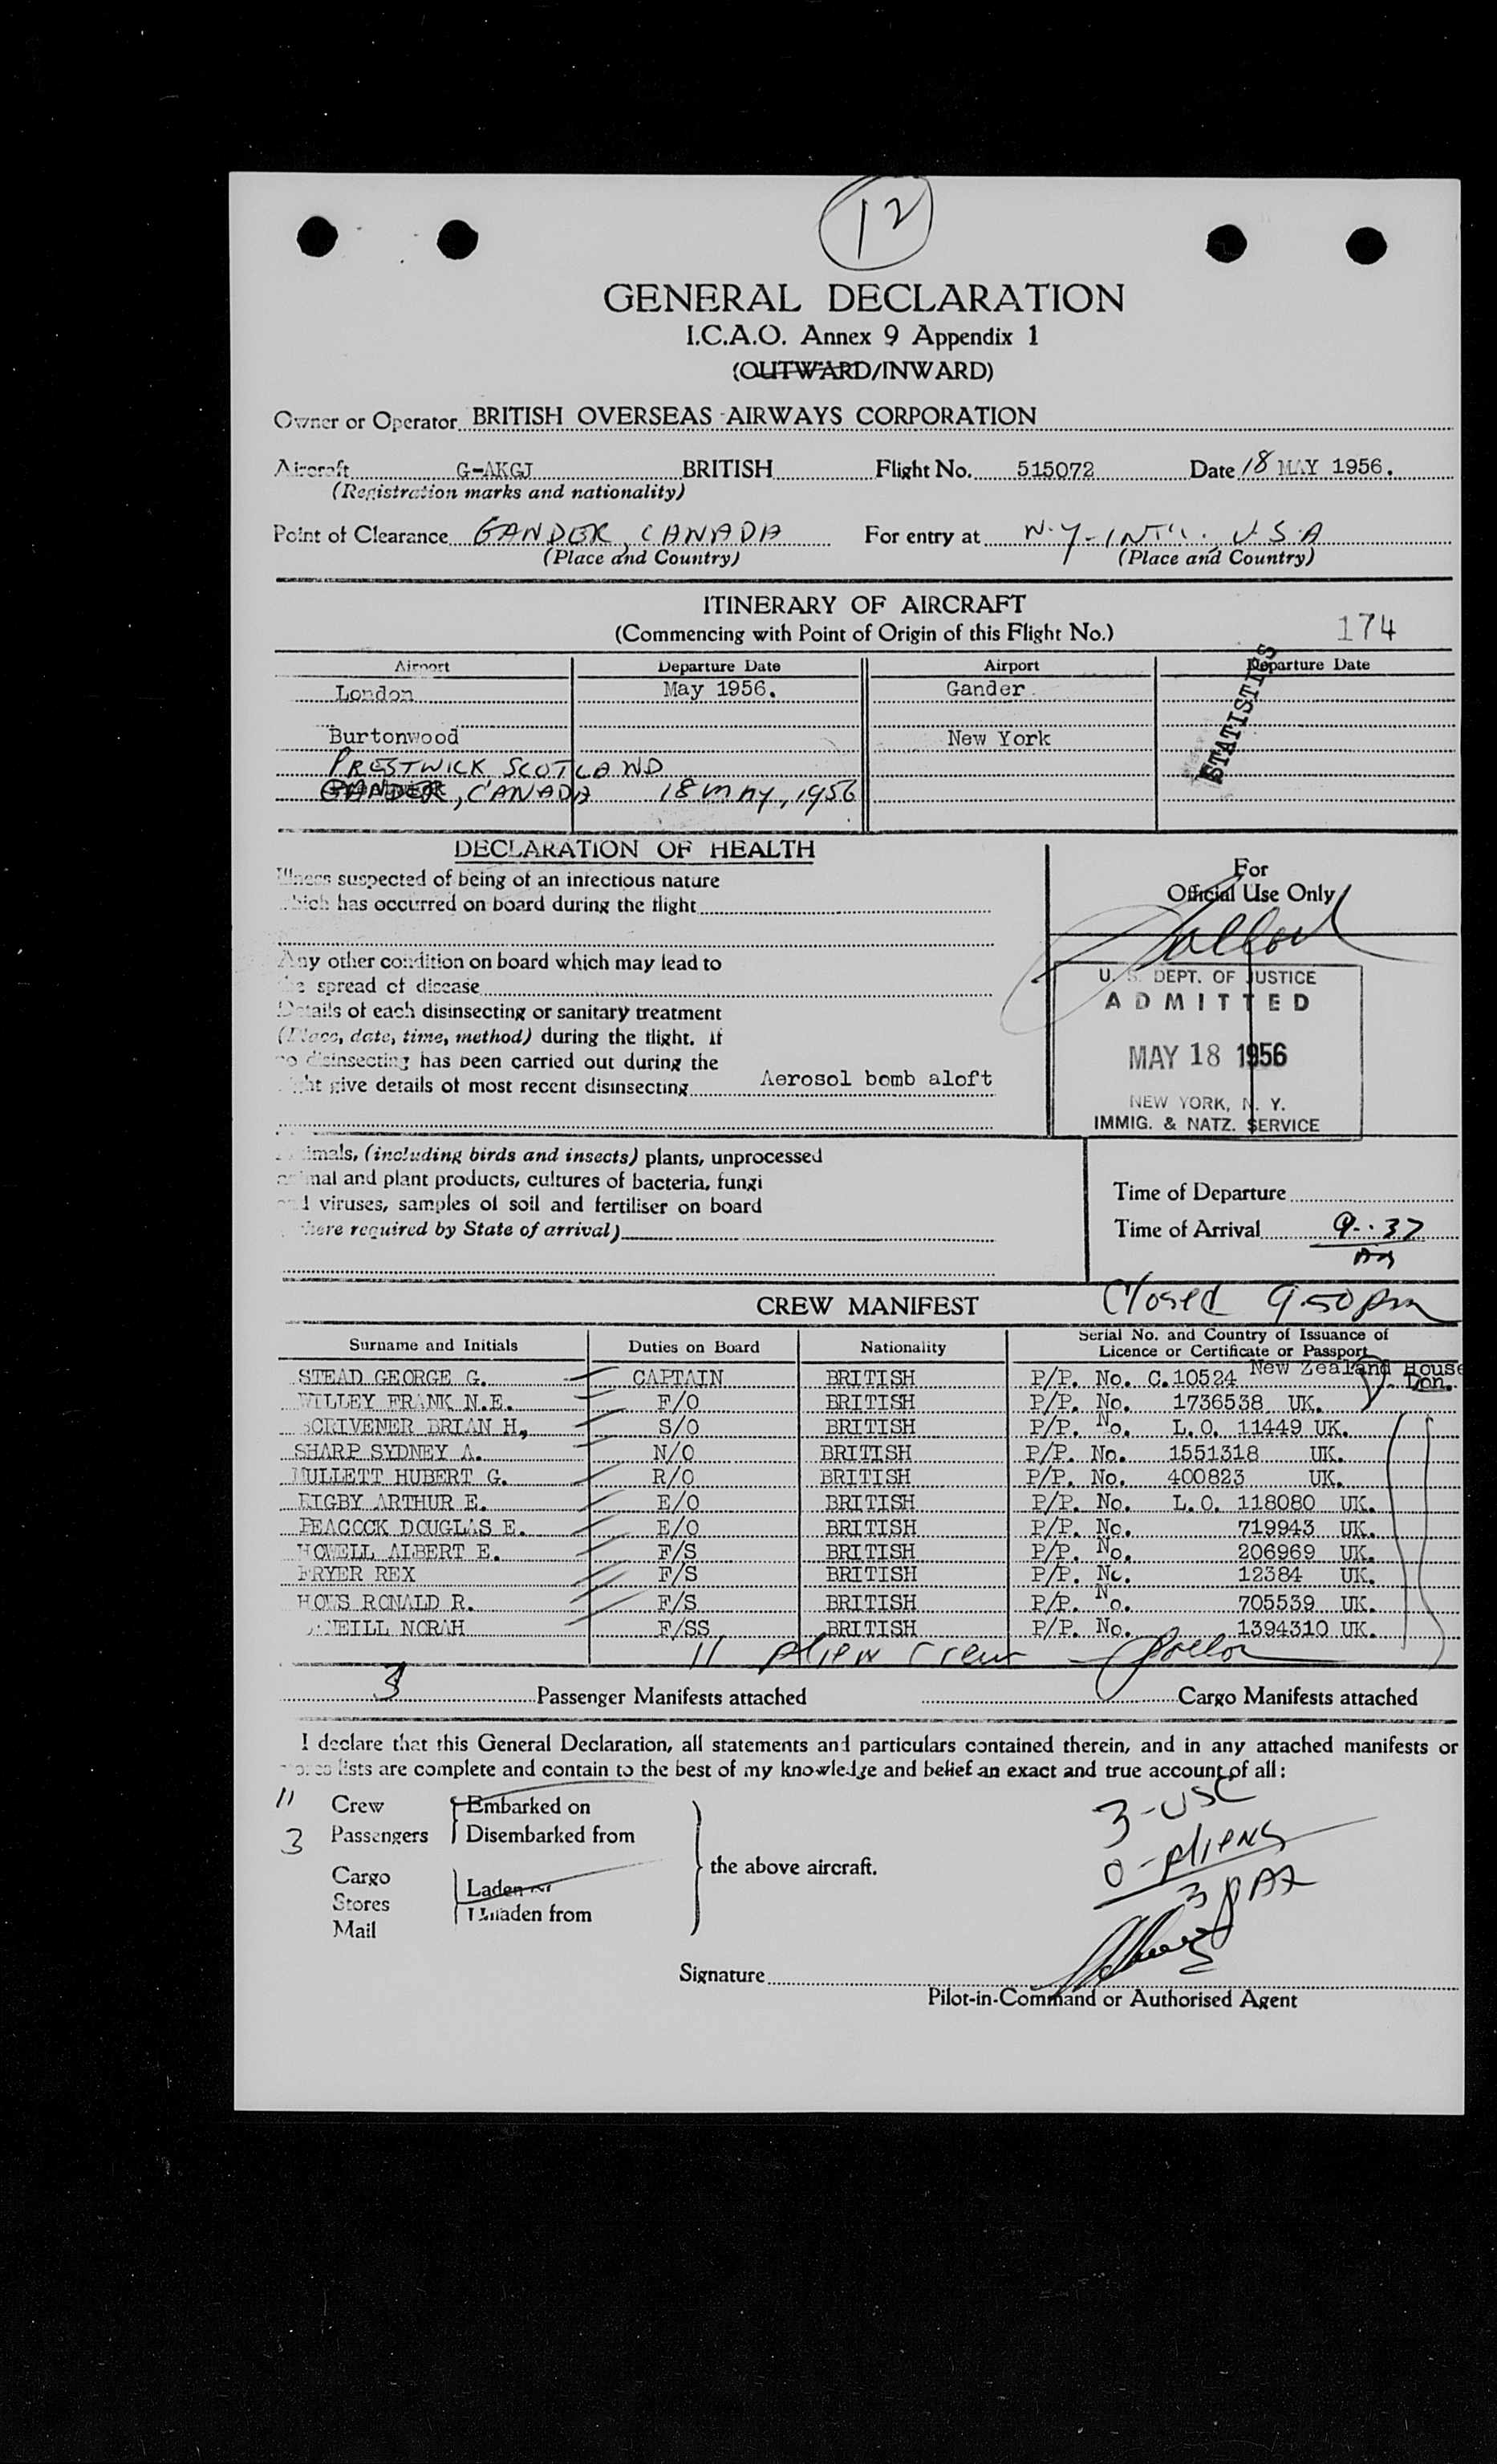 12
GENERAL DECLARATION
I.C.A.O. Annex 9 Appendix 1
(OUTWARD/INWARD)
Owner or Operator BRITISH OVERSEAS AIRWAYS CORPORATION
Aircraft G-AKGJ BRITISH Flight No. 515072 Date 18 MAY 1956.
(Registration marks and nationality)
Point of Clearance GANDER, CANADA For entry at N.Y-INT'L. U.S.A
(Place and Country) (Place and Country)
ITINERARY OF AIRCRAFT
(Commencing with Point of Origin of this Flight No.) 174
Airport Departure Date Airport Departure Date
London May 1956. Gander
STATISTICS
Burtonwood New York
PRESTWICK SCOTLAND
GANDER, CANADA 18 MAY, 1956
DECLARATION OF HEALTH
Illness suspected of being of an infectious nature
which has occurred on board during the flight
For
Official Use Only
Any other condition on board which may lead to
the spread of disease
Details of each disinsecting or sanitary treatment
(Place, date, time, method) during the flight. If
no disinsecting has been carried out during the
flight give details of most recent disinsecting Aerosol bomb aloft
U. S. DEPT. OF JUSTICE
ADMITTED
MAY 18 1956
NEW YORK, N. Y.
IMMIG. & NATZ. SERVICE
Animals, (including birds and insects) plants, unprocessed
animal and plant products, cultures of bacteria, fungi
and viruses, samples of soil and fertiliser on board
(where required by State of arrival)
Time of Departure
Time of Arrival 9.37
CREW MANIFEST Closed 9.50 pm
Surname and Initials Duties on Board Nationality Serial No. and Country of Issuance of
Licence or Certificate or Passport
STEAD GEORGE G. CAPTAIN BRITISH P/P. No. C.10524 New Zealand House Lon.
WILLEY FRANK N.E. F/O BRITISH P/P. No. 1736538 UK.
SCRIVENER BRIAN H, S/O BRITISH P/P. No. L.O. 11449 UK.
SHARP SYDNEY A. N/O BRITISH P/P. No. 1551318 UK.
MULLETT HUBERT G. R/O BRITISH P/P. No. 400823 UK.
RIGBY ARTHUR E. E/O BRITISH P/P. No. L.O. 118080 UK.
PEACOCK DOUGLAS E. E/O BRITISH P/P. No. 719943 UK.
HOWELL ALBERT E. F/S BRITISH P/P. No. 206969 UK.
FRYER REX F/S BRITISH P/P. No. 12384 UK.
HOWS RONALD R. F/S BRITISH P/P. No. 705539 UK.
O'NEILL NORAH F/SS BRITISH P/P. No. 1394310 UK.
11 Alien Crew
3 Passenger Manifests attached Cargo Manifests attached
I declare that this General Declaration, all statements and particulars contained therein, and in any attached manifests or
stores lists are complete and contain to the best of my knowledge and belief an exact and true account of all:
11 Crew Embarked on
3 Passengers Disembarked from
the above aircraft.
Cargo Laden on
Stores Unladen from
Mail
3-USC
0-Aliens
3 PAX
Signature
Pilot-in-Command or Authorised Agent